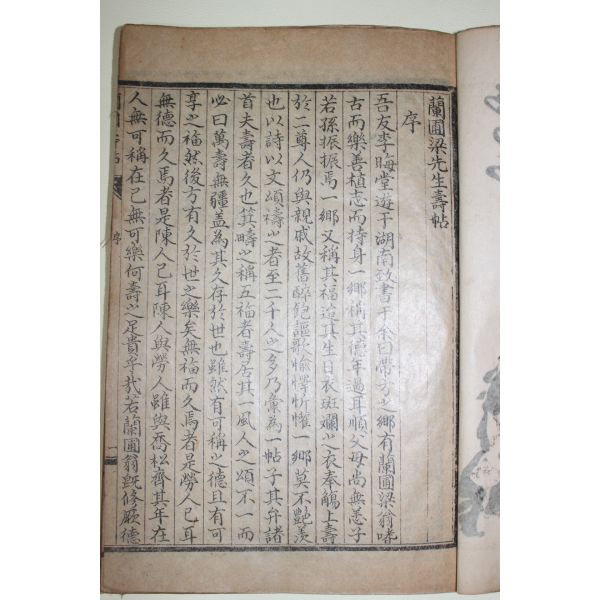 蘭圃梁先生壽帖
序
吾友李晦堂遊于湖南致書于余曰帶方之鄕有蘭圃梁翁嗜
古而樂善植志而持身一鄕稱其德年過耳順父母尙無恙子
若孫振振焉一鄕又稱其福迨其生日衣斑斕之衣奉觴上壽
於二尊人仍與親戚故舊醉飽謳歌愉懌忻懽一鄕莫不艷羡
也以詩以文頌禱之者至二千人之多乃彙為一帖子其弁諸
首夫壽者久也箕疇之稱五福者壽居其一風人之頌不一而
必曰萬壽無疆盖為其久存於世也雖然有可稱之德且有可
享之福然後方有久於世之樂矣無福而久焉者是勞人已耳
無德而久焉者是陳人已耳陳人與勞人雖與喬松齊其年在
人無可稱在己無可樂何壽之足貴乎哉若蘭圃翁旣修厥德
序